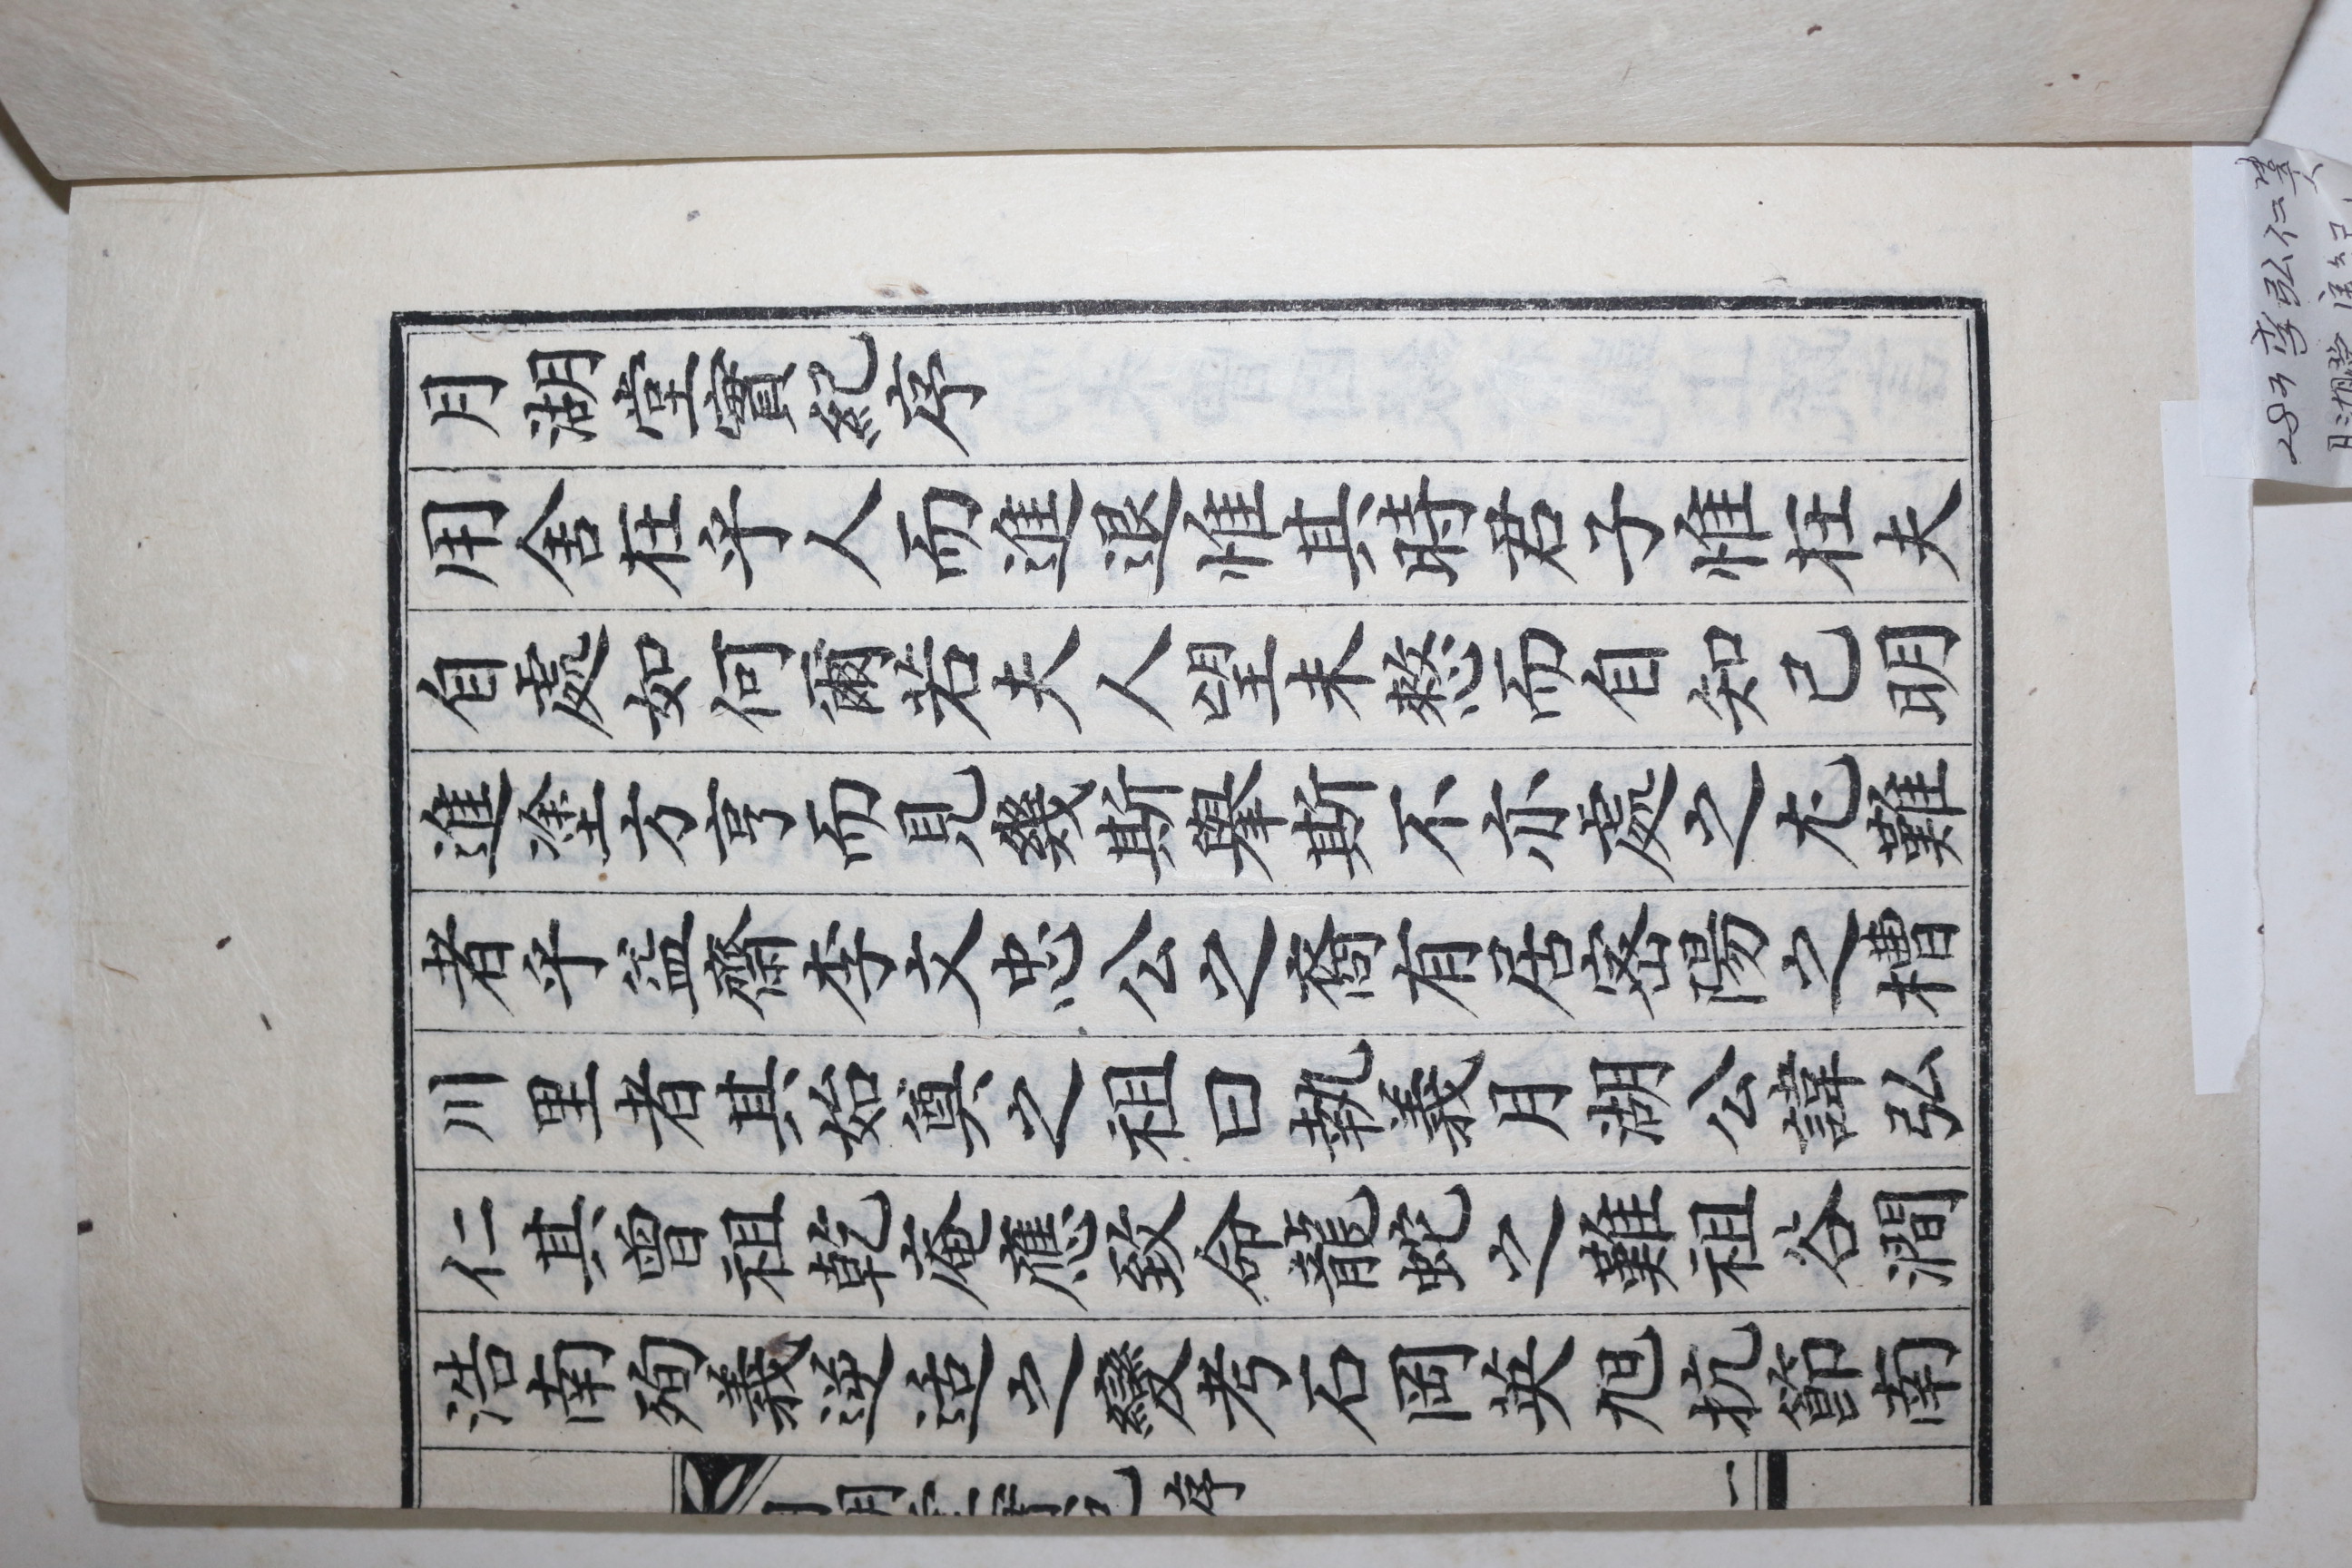 月湖堂實紀序
用舍在乎人而進退惟其時君子惟在夫
自處如何爾若夫人望未愁而自知己明
進塗方亨而見幾斯擧斯不亦處之尤難
者乎益齋李文忠公之裔有居密陽之槽
川里者其始奠之祖曰執義月湖公諱弘
仁其曾祖乾庵應致命龍蛇之難祖谷澗
浩南殉義逆适之變考石岡英旭抗節南
湖堂實紀 序
一
李弘仁
月湖堂實紀